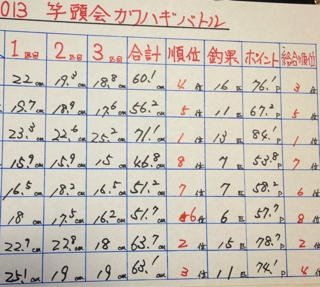 013 竿頭会カワハギバトル
1匹目 2匹目 3匹目 合計 順位 釣果 ポイント 総合順位
22cm 19.3cm 18.8cm 60.1cm 4位 16匹 76.1P 3位
19.7cm 18.9cm 17.6cm 56.2cm 5位 11匹 67.2P 5位
23.3cm 22.6cm 25.2cm 71.1cm 1位 13匹 84.1P 1位
15.9cm 15.9cm 15cm 46.8cm 8位 7匹 53.8P 7位
16.5cm 18.2cm 16.5cm 51.2cm 7位 7匹 58.2P 6位
18cm 17.5cm 16.2cm 51.7cm 6位 6匹 57.7P 8位
22.9cm 22.8cm 18cm 63.7cm 2位 15匹 78.7P 2位
25.1cm 19cm 19cm 63.1cm 3位 11匹 74.1P 4位